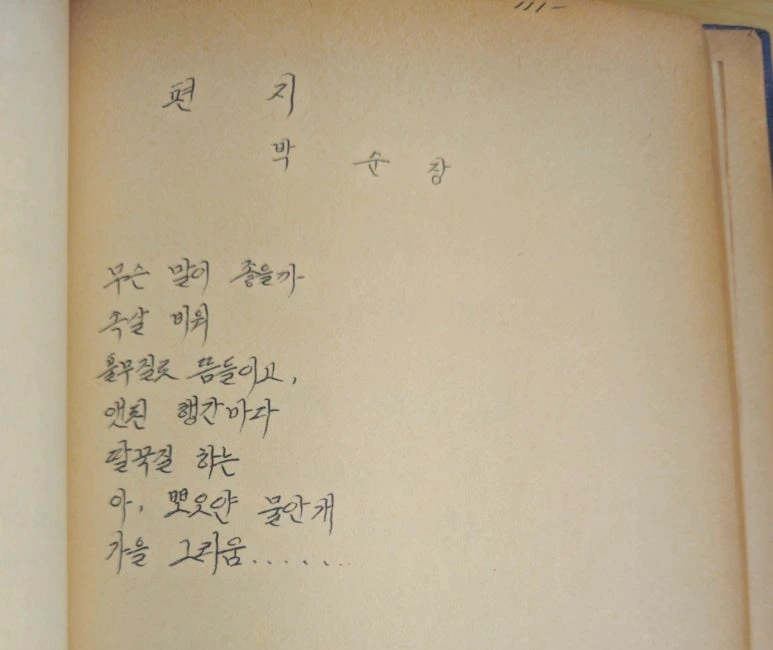 편 지
박 순 장
무슨 말이 좋을까
속살 비워
풀무질로 뜸들이고,
앳된 행간마다
딸꾹질 하는
아, 뽀오얀 물안개
가을 그리움......